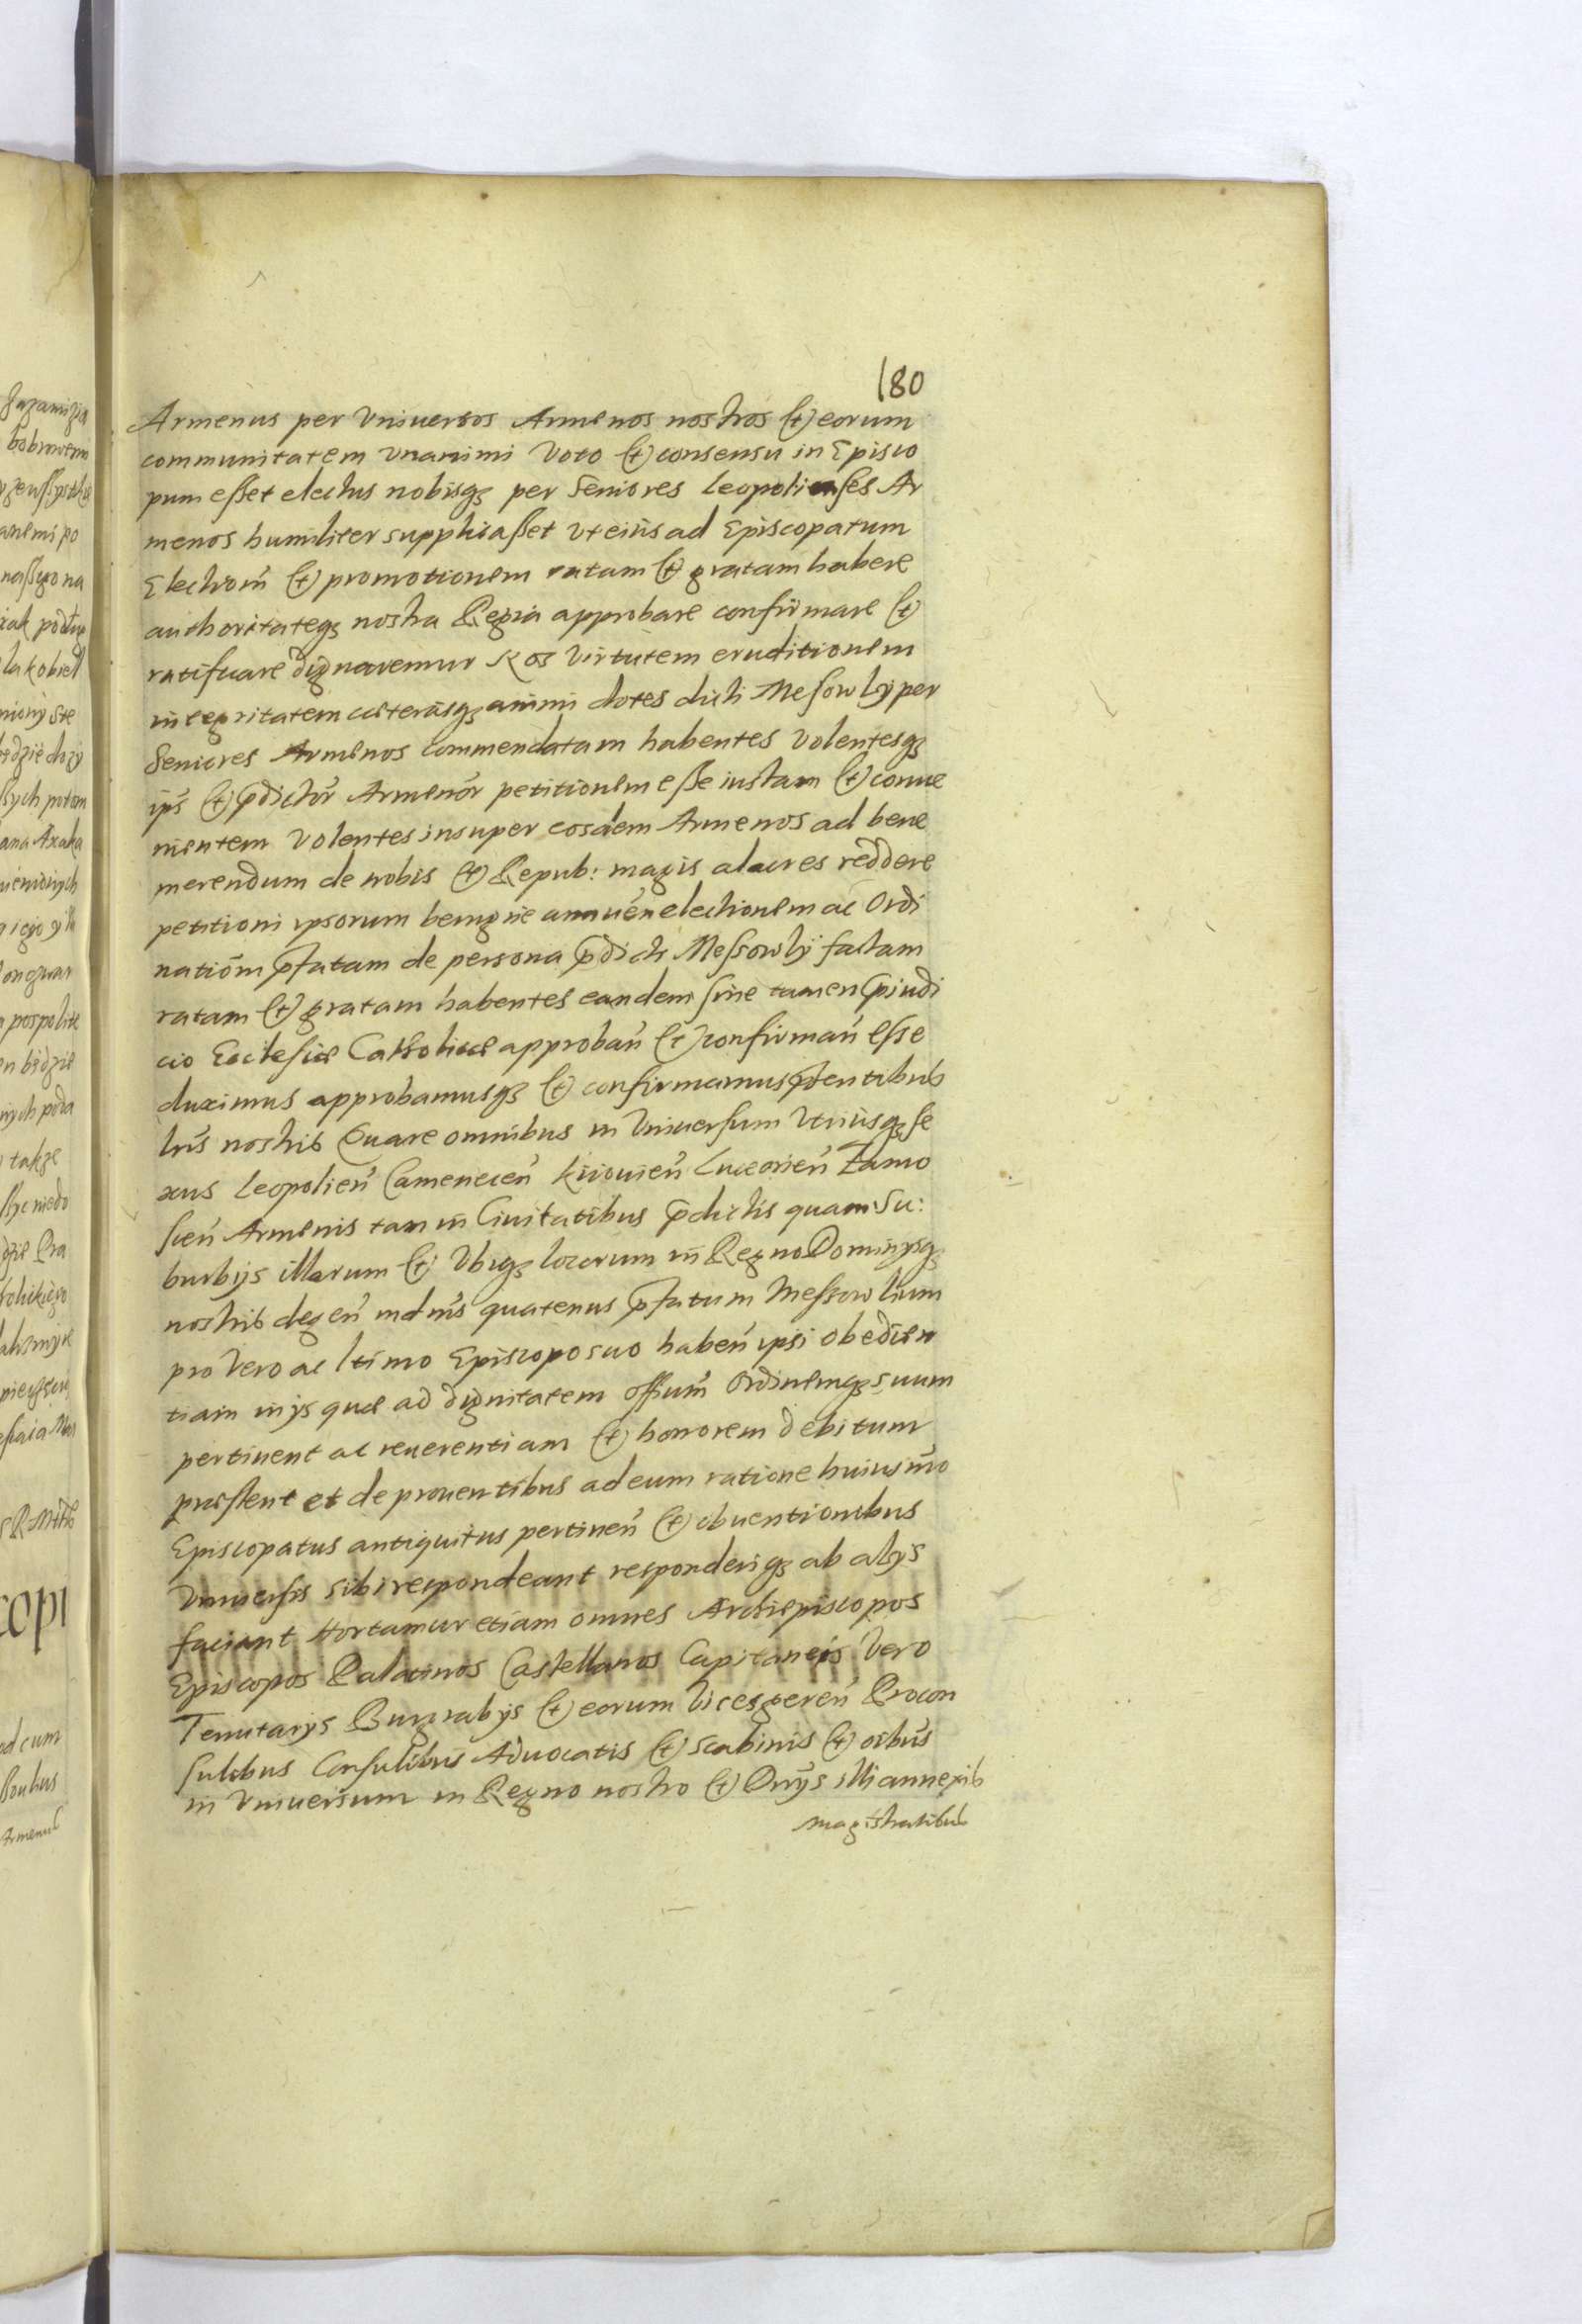 180
Armenus per Vniuersos Armenos nostros (et) eorum
communitatem vnanimi Voto (et) consensu in Episco
pum eßet electus nobisq3 per Seniores Leopolienses Ar
menos humiliter supplicaßet Vt eius ad Episcopatum
Electiom̃ (et) promotionem ratam (et) gratam habere
authoritateq3 nostra Regia approbare confirmare (et)
ratificare dignaremur Nos Virtutem eruditionem
integritatem cæterasq3 animi dotes dicti Mesrowÿ per
Seniores Armenos commendatam habentes Volentesq3
ips̃ (et) p̃dictor̃ Armenor̃ petitionem eße iustam (et) conue
nientem Volentes insuper eosdem Armenos ad bene
merendum de nobis (et) Repub: magis alacres reddere
petitioni ipsorum benigne annuen̄ electionem ac Ordi
natiom̃ p̃fatam de persona p̃dicti Meßrowÿ factam
ratam (et) gratam habentes eandem sine tamen p̃iudi
cio Ecclesiæ Catholicæ approban̄ (et) confirman̄ esse
duximus approbamusq3 (et) confirmamus p̃sentibus
lrĩs nostris Quare omnibus in Vniuersum Vtriusq3 se
xus Leopolien̄ Camenecen̄ Kiiouien̄ Luceorien̄ Zamo
scien̄ Armenis tam in Ciuitatibus p̃dictis quam Su:
burbijs illarum (et) Vbiq3 locorum in Regno Dominijsq3
nostris degen̄ mdm̃s quatenus p̃fatum Meßrowium
pro Vero ac ltimo Episcopo suo haben̄ ipsi obedien
tiam in ijs quæ ad dignitatem offium̃ Ordinemq3 suum
pertinent ac reuerentiam (et) honorem debitum
præstent et de prouentibus ad eum ratione huiusmõ
Episcopatus antiquitus pertinen̄ (et) obuentionibus
Vniuersis sibi respondeant responderiq3 ab alijs
faciant Hortamur etiam omnes Archiepiscopos
Episcopos Palatinos Castellanos Capitaneis Vero
Tenutarijs Burgrabijs (et) eorum Vicesgeren̄ Procon
sulibus Consulibus Aduocatis (et) Scabinis (et) oĩbus
in Vniuersum in Regno nostro (et) Dnĩjs illi annexis
magistratibus